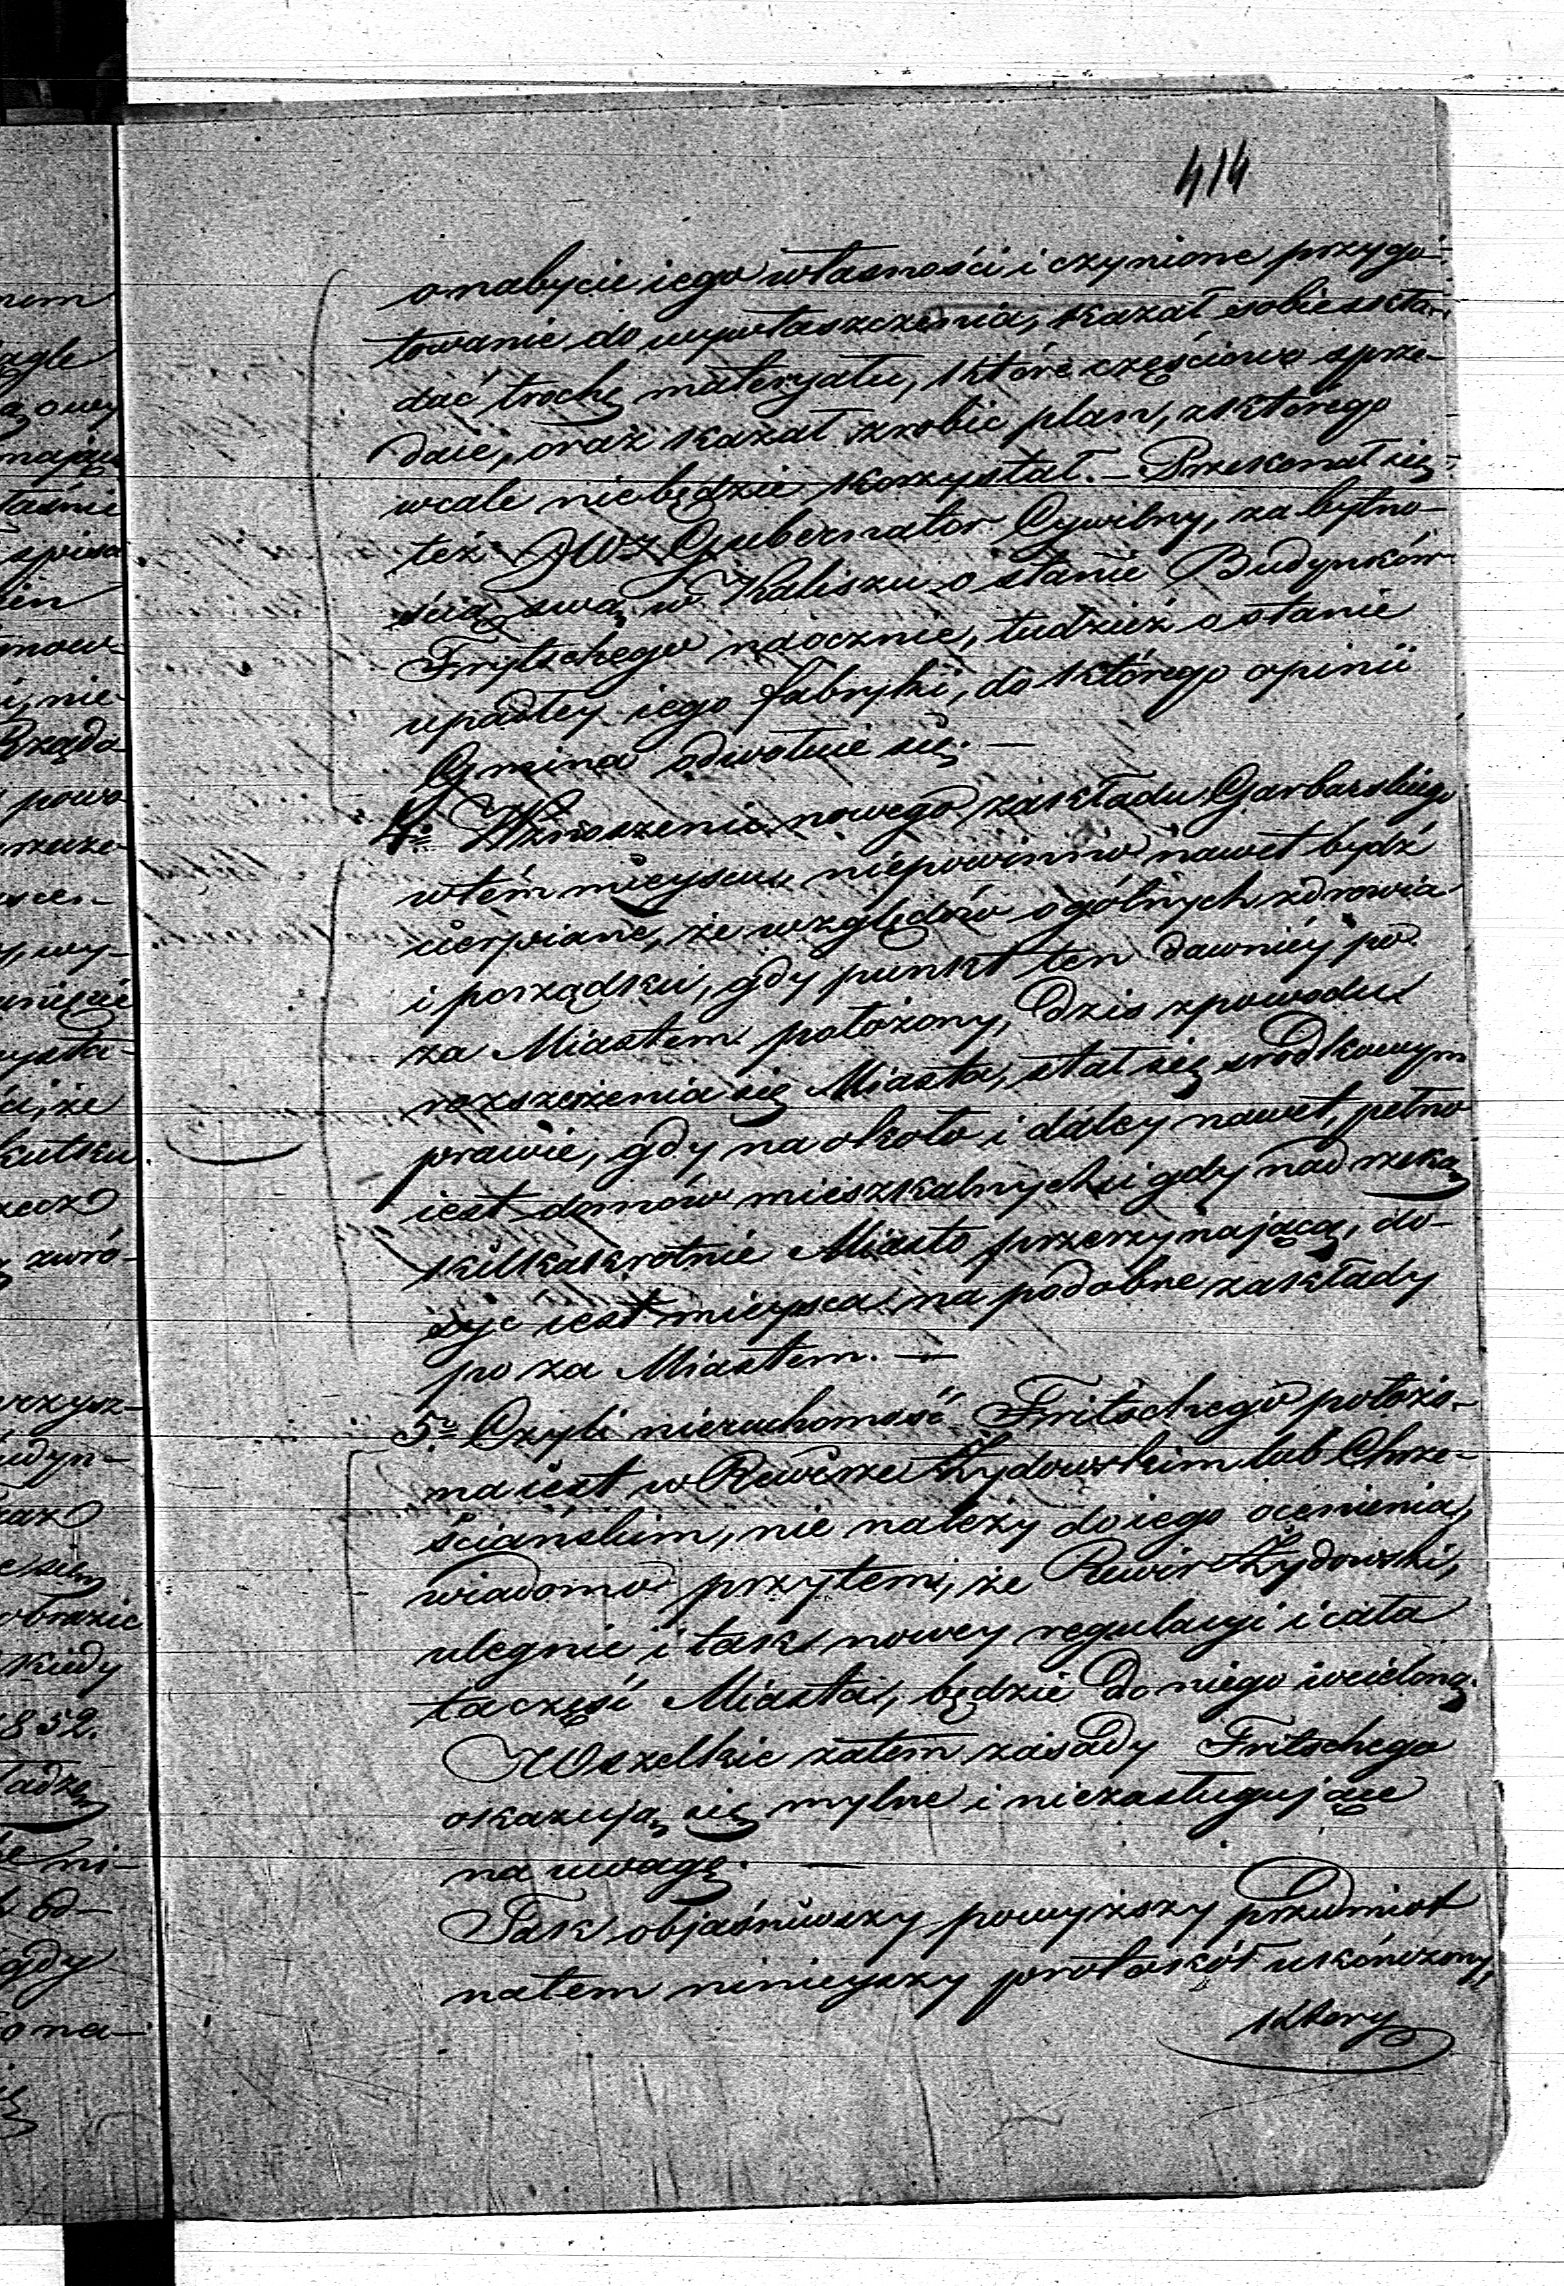 414
o nabycie iego własności i czynione przygo-
towanie do wywłaszczenia, kazał sobie skła-
dać trochę materyału, które częściowo sprze-
daie, oraz kazał zrobić plan, z którego
wcale niebędzie korzystał. – Przekonał się
też JWJ Gubernator Cywilny, za bytno-
ścią swą w Kaliszu o stanie Budynków
Frytschego naocznie, tudzież o stanie
upadłey iego fabryki, do którego opinii
Gmina odwołuie się. –
4o Wznoszenie nowego zakładu Garbarskiego
w tém mieyscu niepowinno nawet bydź
cierpiane, ze względów ogólnych zdrowia
i porządku, gdy punkt ten dawniéy po
za Miastem położony, dziś z powodu
rozszerzenia się Miasta, stał się srodkowym
prawie, gdy na około i daley nawet, pełno
iest domów mieszkalnych i gdy nad rzeką
kilkakrotnie Miasto przerzynającą, do-
syć iest mieysca na podobne zakłady
po za Miastem. –
5o Czyli nieruchomość Fritschego położo-
na iest w Rewirze Żydowskim lub Chrze-
ściańskim, nie należy do iego ocenienia,
wiadomo przytem, że Rewir Żydowski,
ulegnie i tak nowey regulacyi i cała
ta część Miasta, będzie do niego wcieloną.
Wszelkie zatem zasady Fritschego
okazują się mylne i niezasługujące
na uwagę. –
Tak objaśniwszy powyższy przedmiot
natem ninieyszy protokół ukończony,
który